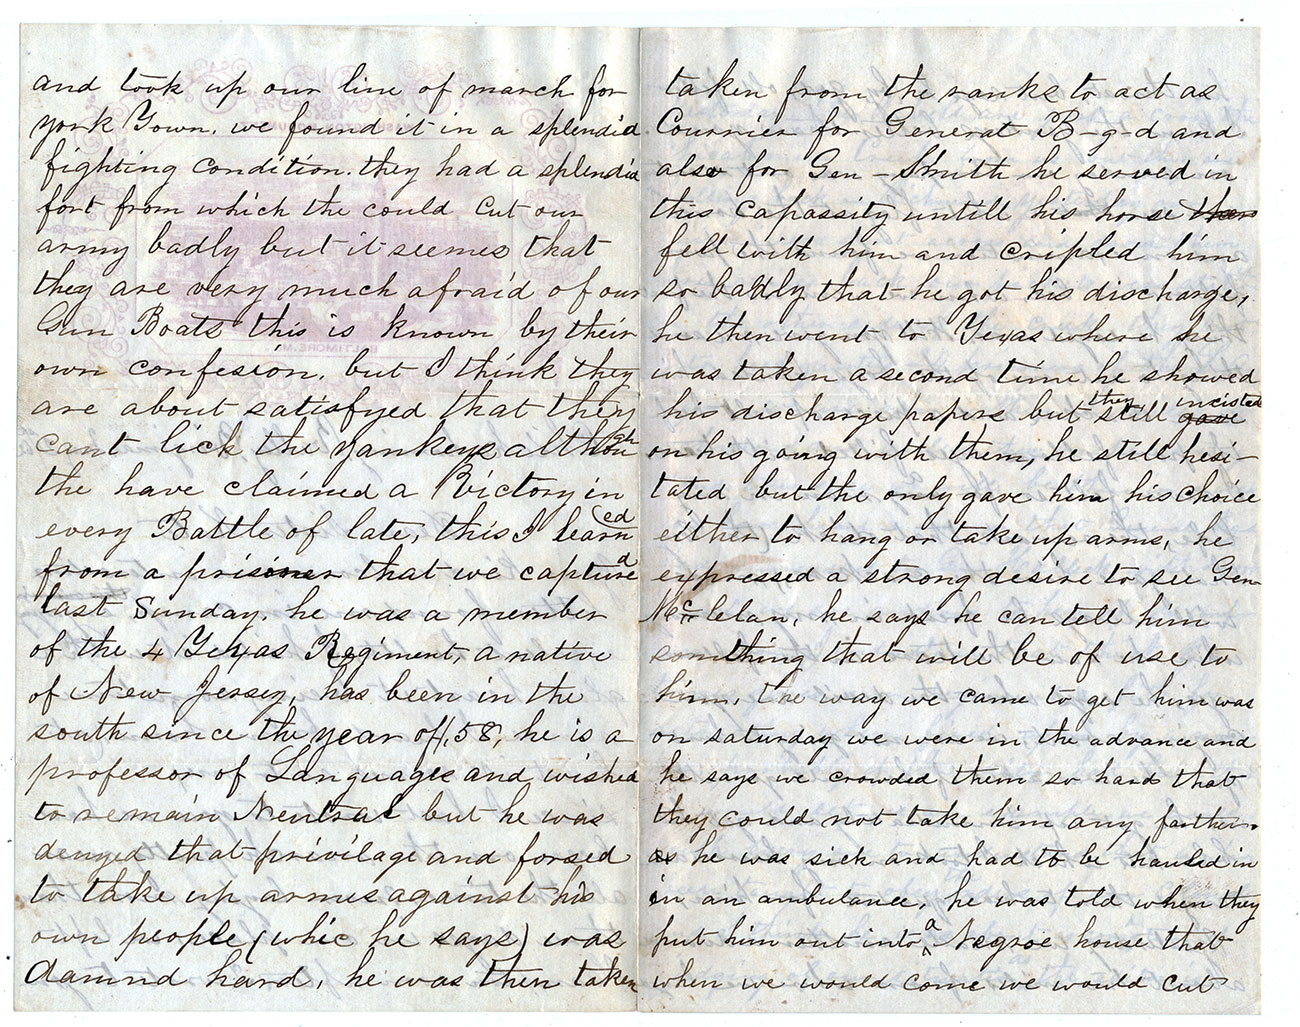 and took up our line of march for
York Town, we found it in a splendid
fighting condition. they had a splendid
fort from which the could cut our
army badly but it seemes that
they are very much afraid of our
Gun Boats this is known by their
own confesion, but I think they
are about satisfyed that they
cant lick the yankeys although
the have claimed a Victory in
every Battle of late, this I learned
from a prisoner that we captured
last Sunday, he was a member
of the 4 Texas Regiment, a native
of New Jersey, has been in the
south since the year of, 58, he is a
professor of Languages and wished
to remain Neutral but he was
denyed that privilage and forsed
to take up armes against his
own people (whic he says) was
damnd hard, he was then taken
taken from the ranks to act as
Courrier for General B-g-d and
also for Gen - Smith he served in
this capassity untill his horse
fell with him and cripled him
so badly that he got his discharge,
he then went to Texas where he
was taken a second time he showed
his discharge papers but they still gave incisted
on his going with them, he still hesi-
tated but the only gave him his choice
either to hang or take up arms, he
expressed a strong desire to see Gen
McClelan, he says he can tell him
somthing that will be of use to
him, the way we came to get him was
on saturday we were in the advance and
he says we crowded them so hard that
they could not take him any farther.
as he was sick and had to be hauled in
in an ambulance, he was told when they
put him out into a Negroe house that
when we would come we would cut
BALTIMORE, M